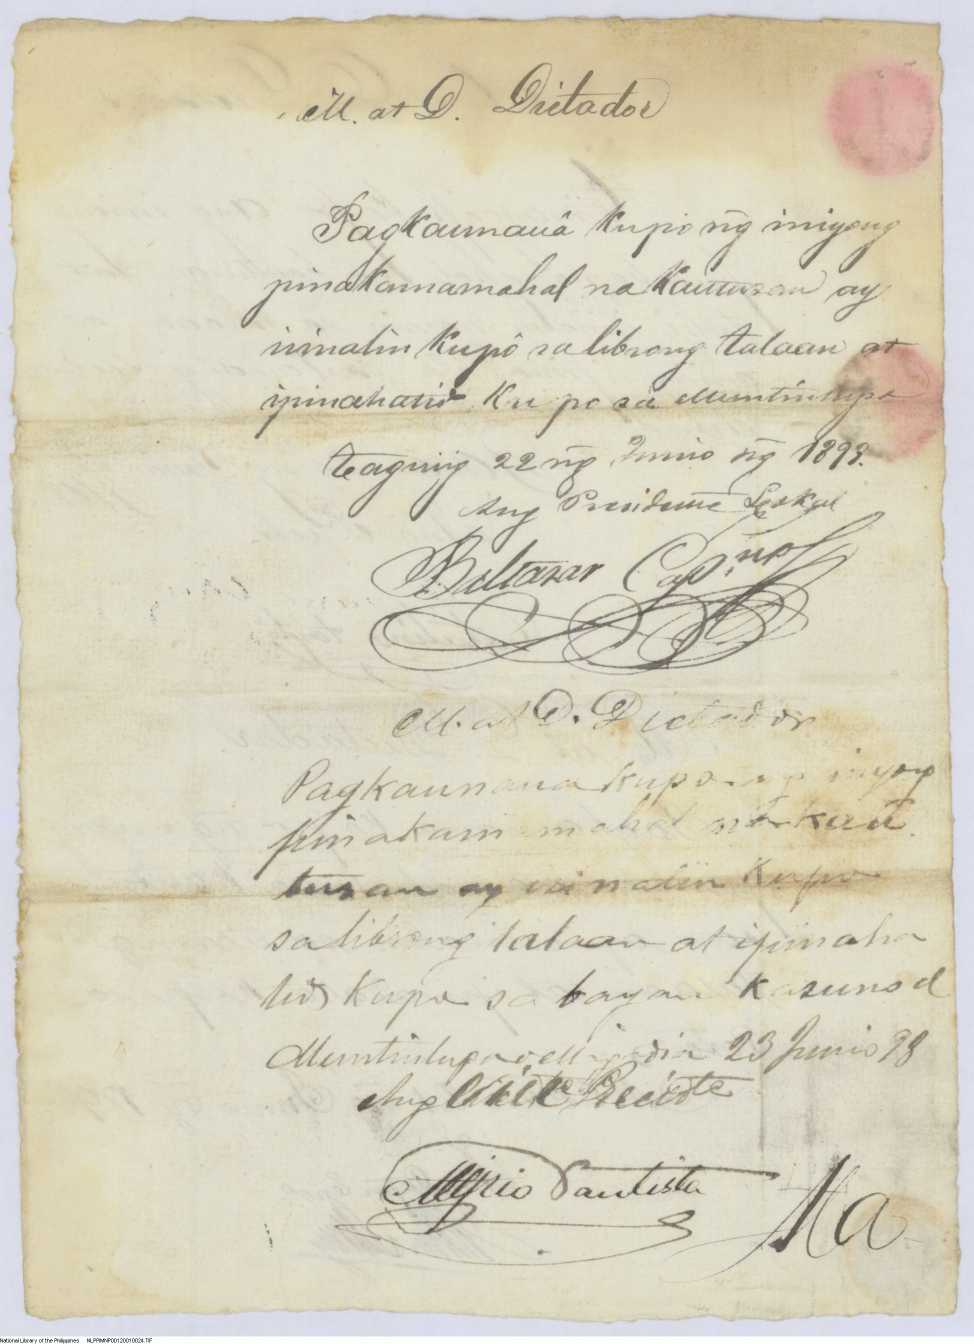 M. at D. Dictador
Pagkaunauâ Kupo ng̃ iniyong
pinakamamahal na Kautusan ay
isinalin Kupô sa librong talaan at
ipinahatid Ku po sa Muntinlupa
Taguig 22 ng̃ Junio ng̃ 1898.
Ang Presidente Lokal
Baltazar
M. at D. Dictador
Pagkaunaua Kupo ng inyong
pinakamamahal na kau
tusan ay isinalin Kupo
sa librong talaan at ipinaha
tid Kupo sa bayan Kasunod
Muntinlupa 23 Junio 98
Ang
Bautista
National Library of the Philippines NLPPIMNP00120010024.TIF